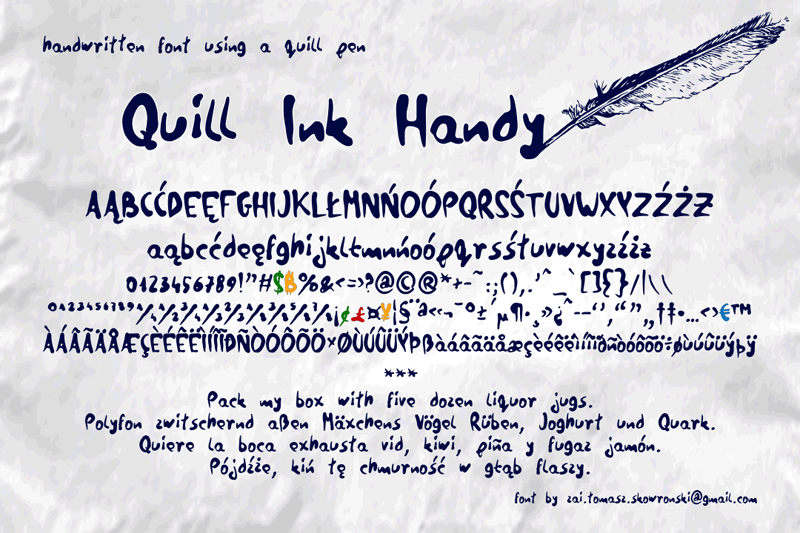 handwritten font using a quill pen
Quill Ink Handy
AĄBCĆDEĘFGHIJKLŁMNŃOÓPQRSŚTUVWXYZŹŻƵ
aąbcćdeęfghijklłmnńoópqrsśtuvwxyzźż
0123456789!"#$₿%&<=>?@©®*+-~:;(),.'^_`[]{}/|\
¡¢£¤¥¦§¨ª«¬¯°±´µ¶·¸»¿
ÀÁÂÃÄÅÆÇÈÉÊËÌÍÎÏÐÑÒÓÔÕÖ×ØÙÚÛÜÝÞßàáâãäåæçèéêëìíîïðñòóôõö÷øùúûüýþÿ
***
Pack my box with five dozen liquor jugs.
Polyfon zwitschernd aßen Mäxchens Vögel Rüben, Joghurt und Quark.
Quiere la boca exhausta vid, kiwi, piña y fugaz jamón.
Pójdźże, kiń tę chmurność w głąb flaszy.
font by zai.tomasz.skowronski@gmail.com